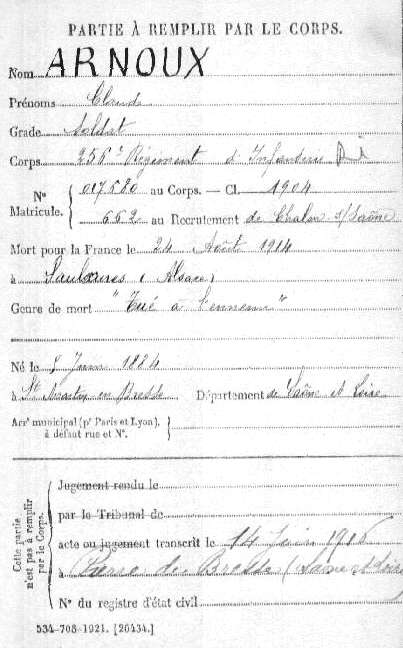 PARTIE À REMPLIR PAR LE CORPS.
Nom ARNOUX
Prénoms Claude
Grade Soldat
Corps 256e Régiment d'Infanterie
N° Matricule. 017580 au Corps. — Cl. 1904
662 au Recrutement de Chalon s/Saône
Mort pour la France le 24 Août 1914
à Saulxures (Alsace)
Genre de mort "Tué à l'ennemi"
Né le Juin 1884
à St Martin en Bresse Département de Saône et Loire
Arrt municipal (pr Paris et Lyon),
à défaut rue et N°.
Cette partie
n'est pas à remplir
par le Corps.
Jugement rendu le
par le Tribunal de
acte ou jugement transcrit le 14 Juin 1916
à Pierre de Bresse (Saône et Loire)
N° du registre d'état civil
534-708-1921. [26434.]